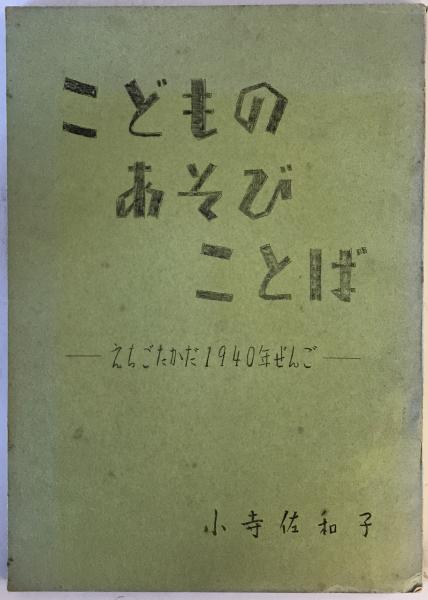 こどもの
あそび
ことば
― えちごたかだ1940年ぜんご ―
小寺佐和子